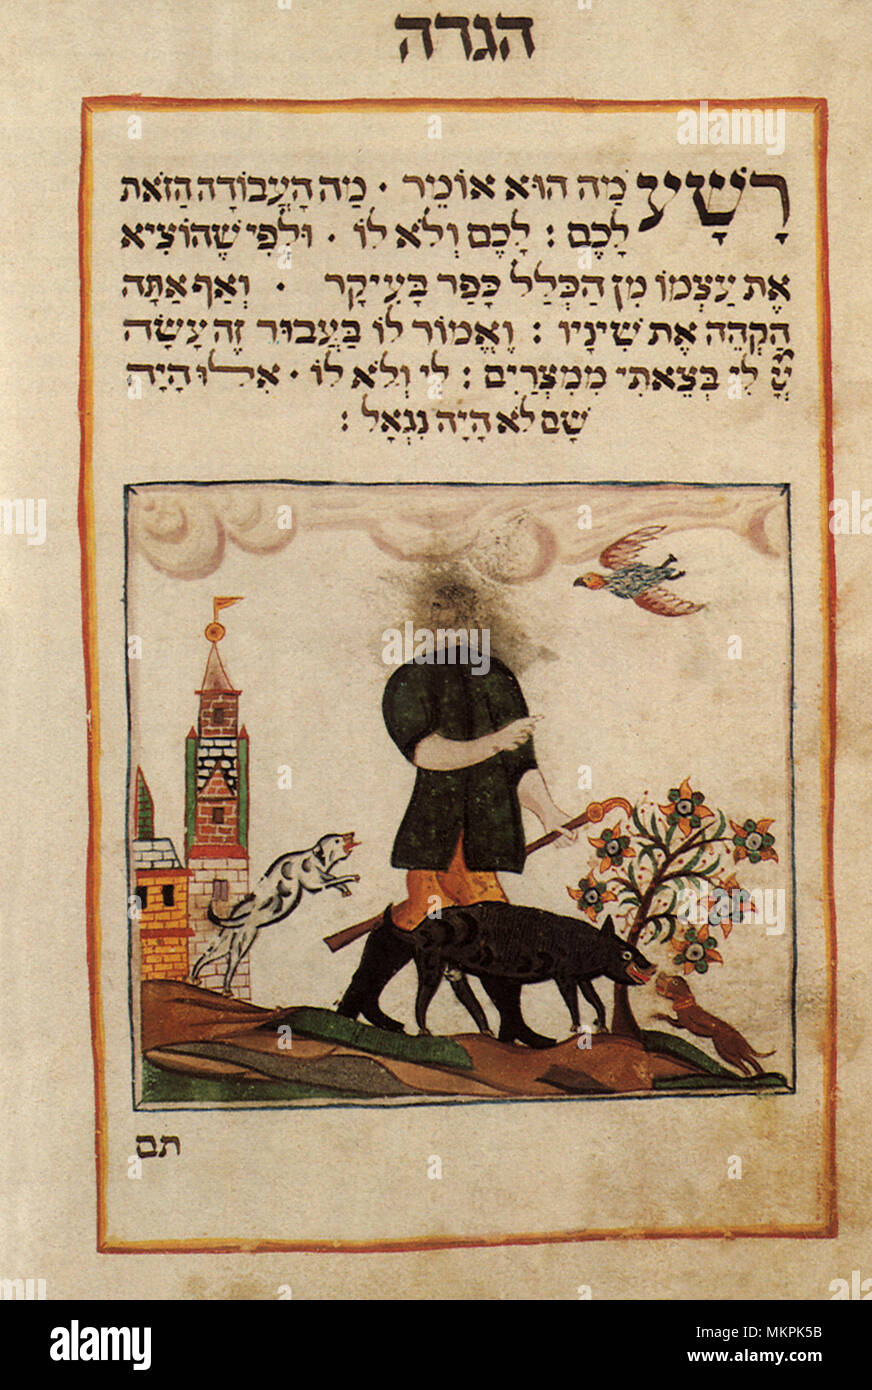 הגדה
רָשָׁע מַה הוּא אוֹמֵר · מַה הָעֲבוֹדָה הַזֹּאת
לָכֶם : לָכֶם וְלֹא לוֹ · וּלְפִי שֶׁהוֹצִיא
אֶת עַצְמוֹ מִן הַכְּלַל כָּפַר בָּעִיקָר · וְאַף אַתָּה
הַקְהֵה אֶת שִׁינָיו : וֶאֱמוֹר לוֹ בַּעֲבוּר זֶה עָשָׂה
לִי בְּצֵאתִי מִמִצְרַיִם : לִי וְלֹא לוֹ · אִילּוּ הָיָה
שָׁם לֹא הָיָה נִגְאָל :
תם
alamy
a
a
alamy
a
a
alamy
a
a
alamy
alamy
Image ID: MKPK5B
www.alamy.com